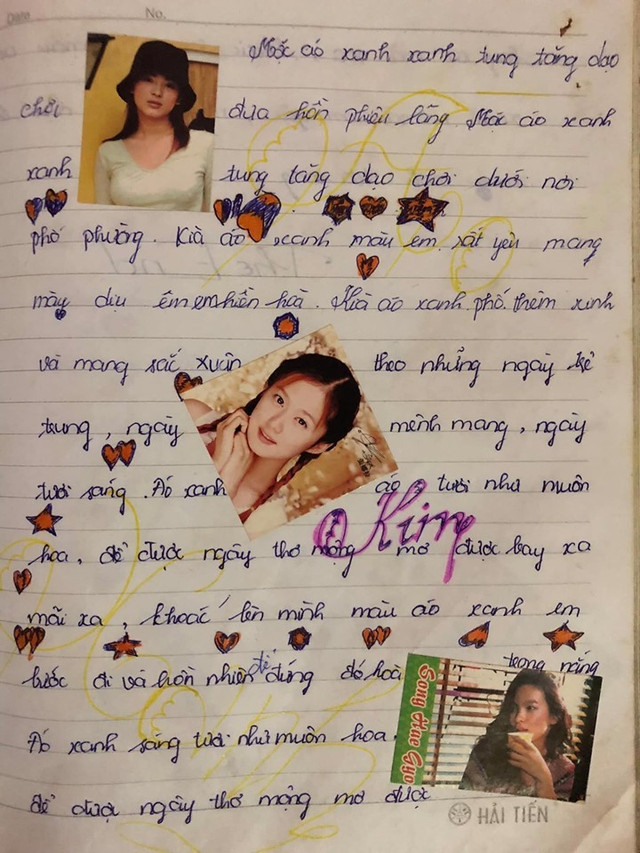 Date No.
Mặc áo xanh xanh tung tăng dạo
chơi đưa hồn phiêu lãng. Mặc áo xanh
xanh tung tăng dạo chơi dưới nơi
phố phường. Kìa áo xanh màu em rất yêu mang
màu dịu êm em hiền hoà. Kìa áo xanh phố thêm xinh
và mang sắc xuân theo những ngày trẻ
trung, ngày mênh mang, ngày
tươi sáng. Áo xanh áo tươi như muôn
Kim
hoa, để được ngây thơ mộng mơ được bay xa
mãi xa, khoác lên mình màu áo xanh em
bước đi và hồn nhiên để đứng đó hoà trong nắng
Song Hae Gyo
Áo xanh sáng tươi như muôn hoa.
để được ngây thơ mộng mơ được
HẢI TIẾN